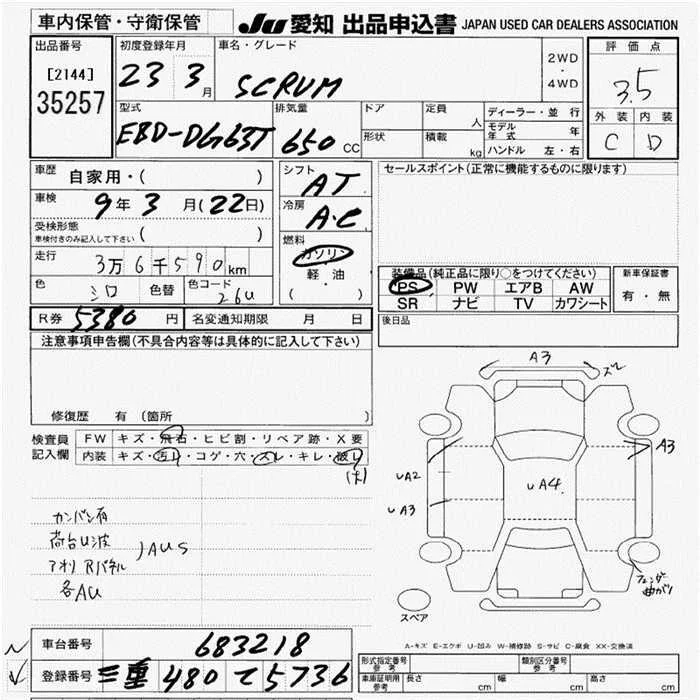 車内保管・守衛保管
JU 愛知 出品申込書 JAPAN USED CAR DEALERS ASSOCIATION
出品番号
[2144]
35257
初度登録年月
23 3月
車名・グレード
SCRUM
2WD
・
4WD
評価点
3.5
外装 内装
C D
型式
EBD-DG63T
排気量
650 CC
ドア
形状
定員
人
積載
kg
ディーラー・並行
モデル年式 年
ハンドル 左・右
車歴
自家用・( )
車検
9年3月(22日)
受検形態
車検付きのみ記入して下さい ( )
走行
3万6千590km
色
シロ
色替
色コード
26U
シフト
AT
冷房
A・C
燃料
ガソリン
・
軽油
( )
セールスポイント(正常に機能するものに限ります)
装備品(純正品に限り○をつけてください)
PS PW エアB AW
SR ナビ TV カワシート
新車保証書
有・無
R券 5380円
名変通知期限 月 日
後日品
注意事項申告欄(不具合内容等は具体的に記入して下さい)
修復歴 有(箇所 )
検査員記入欄
FW キズ・飛石・ヒビ割・リペア跡・X要
内装 キズ・汚れ・コゲ・穴・スレ・キレ・破レ
(大)
カンバン有
荷台U波
アオリRパネル
JAUS
各AU
A3
ズレ
A3
UA2
UA3
UA4
フェンダー
曲がり
スペア
A-キズ E-エクボ U-凹み W-補修跡 S-サビ C-腐食 XX-交換済
車台番号
683218
登録番号
三重 480 て 5736
形式指定番号
参考
類別区分番号
参考
車庫証明用
参考
長さ cm
幅 cm
高さ cm